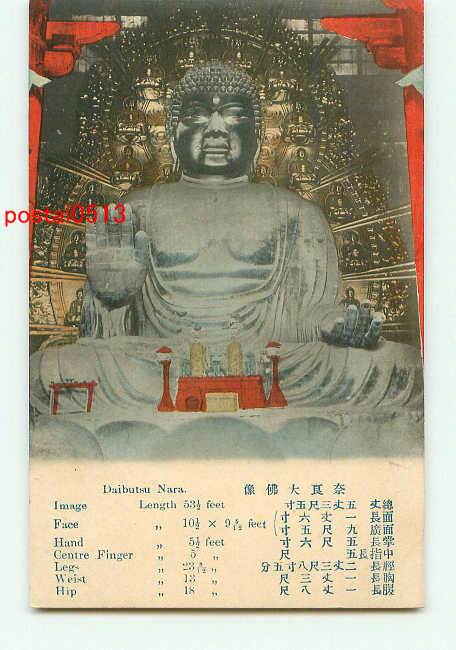 postal0513
Daibutsu Nara. 像佛大良奈
Image Length 53½ feet 寸五尺三丈五丈總
Face „ 10½ × 9 5/12 feet 寸六丈一長面
寸五尺九廣面
Hand „ 5½ feet 寸六尺五長掌
Centre Finger „ 5 „ 尺五長指中
Legs „ 分五寸八尺三丈二長脛
Weist „ 13 „ 尺三丈一長胸
Hip „ 18 „ 尺八丈一長腹